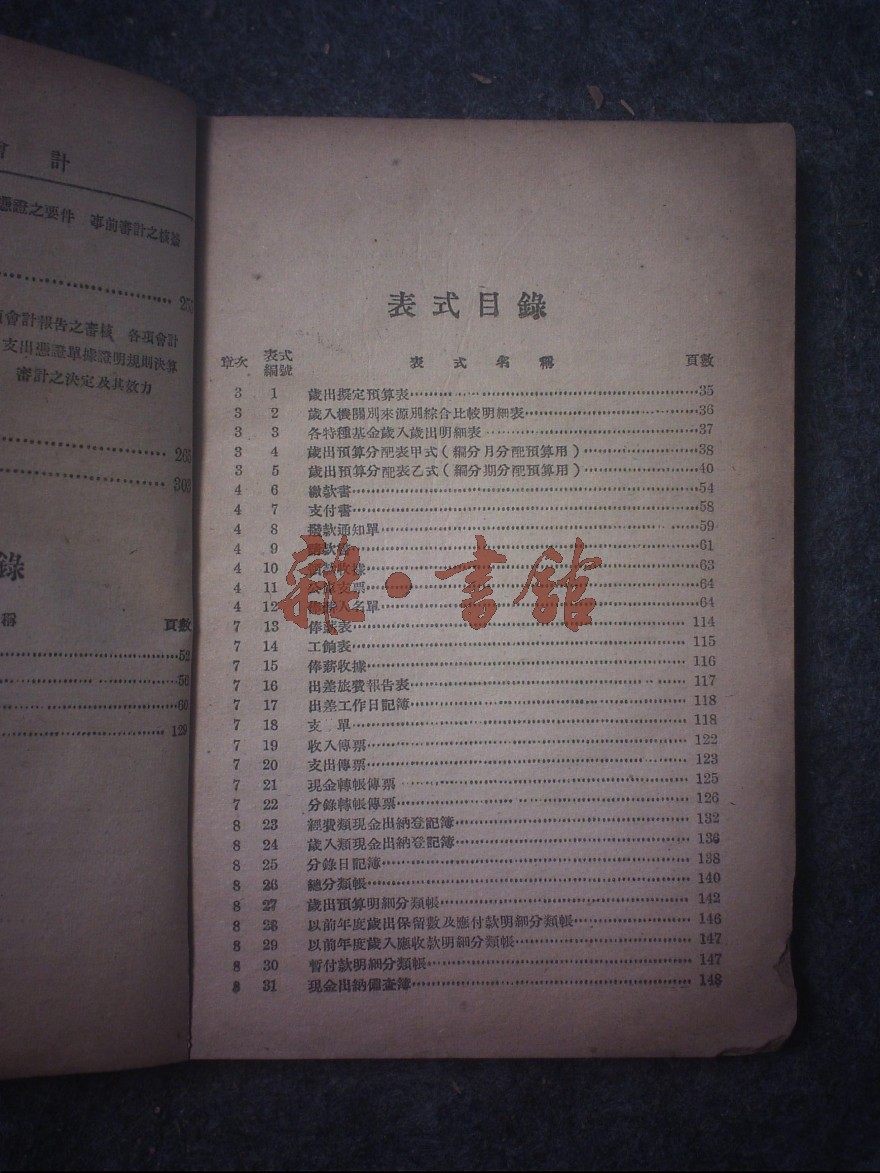 會計
憑證之要件 事前審計之核簽
25
會計報告之審核 各項會計
支出憑證單據證明規則決算
審計之決定及其效力
265
303
錄
稱 頁數
52
56
60
129
表式目錄
章次 表式編號 表式名稱 頁數
3 1 歲出擬定預算表 35
3 2 歲入機關別來源別綜合比較明細表 36
3 3 各特種基金歲入歲出明細表 37
3 4 歲出預算分配表甲式(欄分月分配預算用) 38
3 5 歲出預算分配表乙式(欄分期分配預算用) 40
4 6 繳款書 54
4 7 支付書 58
4 8 撥款通知單 59
4 9 款書 61
4 10 收據 63
4 11 公庫支票 64
4 12 人名單 64
7 13 俸薪表 114
7 14 工餉表 115
7 15 俸薪收據 116
7 16 出差旅費報告表 117
7 17 出差工作日記簿 118
7 18 支單 118
7 19 收入傳票 122
7 20 支出傳票 123
7 21 現金轉帳傳票 125
7 22 分錄轉帳傳票 126
8 23 經費類現金出納登記簿 132
8 24 歲入類現金出納登記簿 136
8 25 分錄日記簿 138
8 26 總分類帳 140
8 27 歲出預算明細分類帳 142
8 28 以前年度歲出保留數及應付款明細分類帳 146
8 29 以前年度歲入應收款明細分類帳 147
8 30 暫付款明細分類帳 147
8 31 現金出納備查簿 148
雜·書館